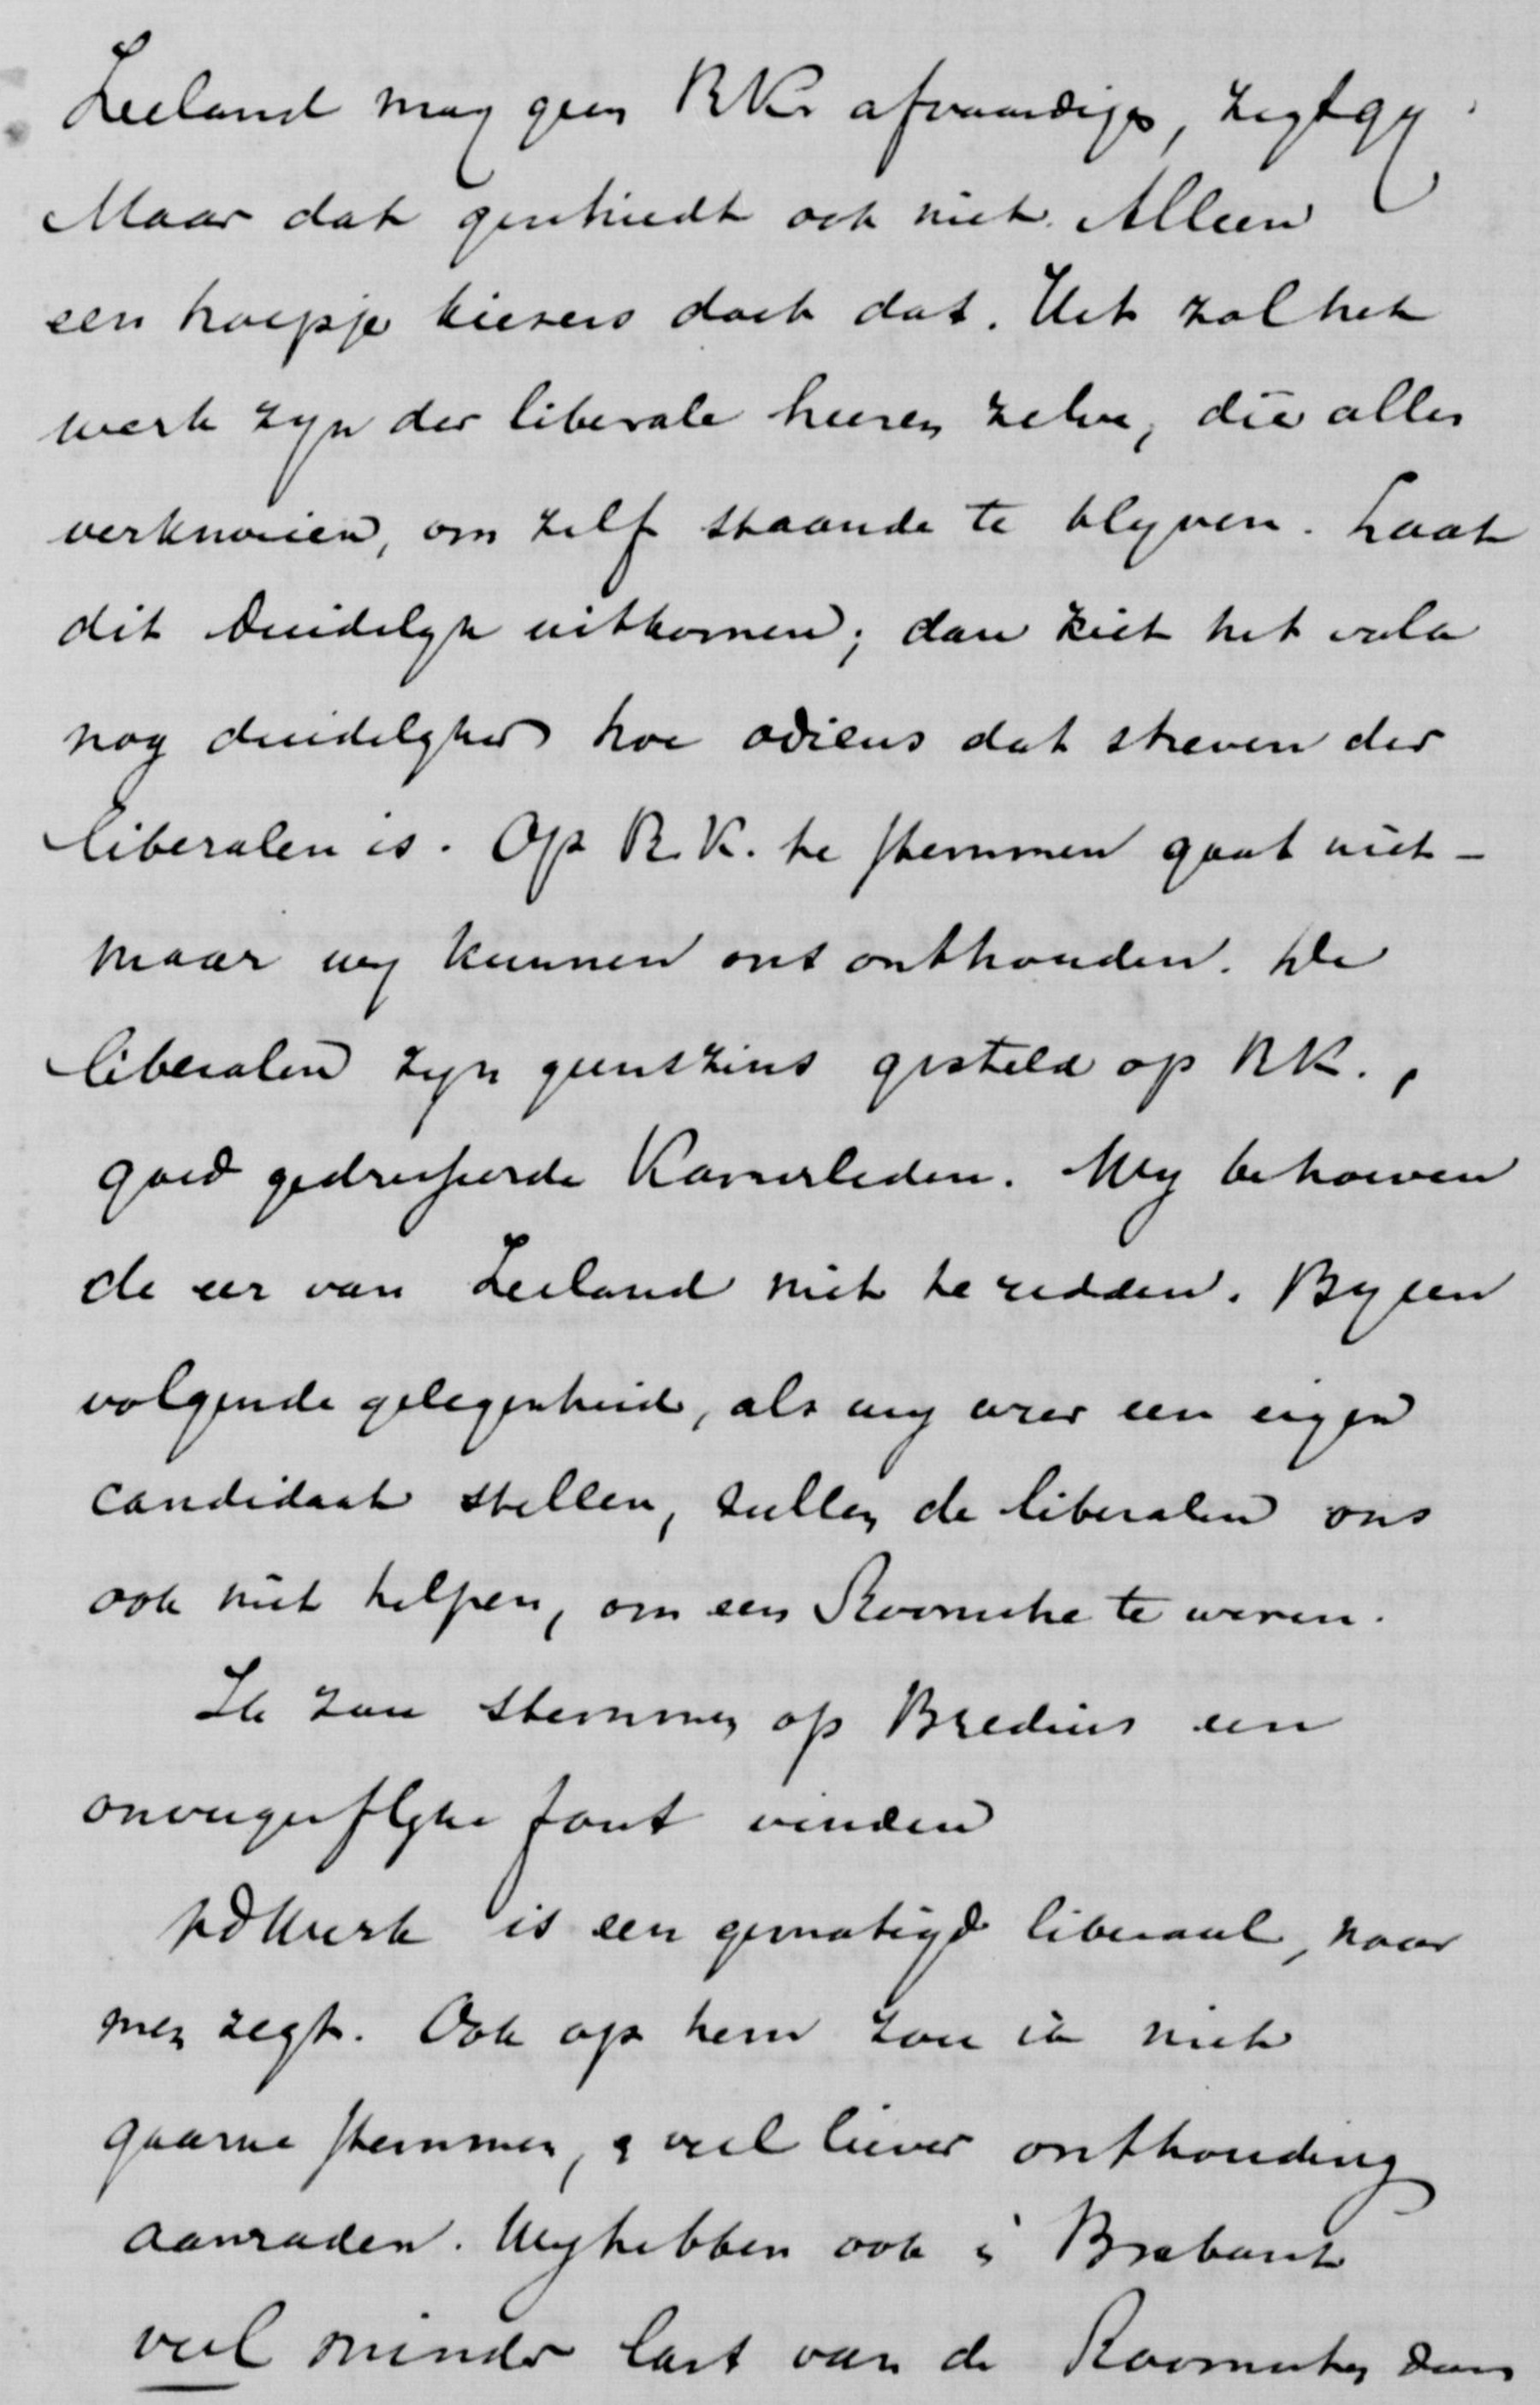 Zeeland mag geen RKn afvaardigen, zegt gy.
Maar dat geschiedt ook niet. Alleen
een hoopje kiezers doet dat. Het zal het
werk zyn der liberale heeren zelve, die alles
verknoeien, om zelf staande te blyven. Laat
dit duidelyk uitkomen; dan ziet het volk
nog duidelyker hoe odieus dat streven der
liberalen is. Op R.K. te stemmen gaat niet -
maar wy kunnen ons onthouden. De
liberalen zyn geenszins gesteld op RK.,
goed gedresseerde Kamerleden. Wy behoeven
de eer van Zeeland niet te redden. By een
volgende gelegenheid, als wy weer een eigen
candidaat stellen, zullen de liberalen ons
ook niet helpen, om een Roomsche te weren.
Ik zou stemmen op Bredius een
onvergeeflyke fout vinden
is een gematigd liberaal, naar
men zegt. Ook op hem zou ik niet
gaarne stemmen, & veel liever onthouding
aanraden. Wy hebben ook i Brabant
veel minder last van de Roomschen dan